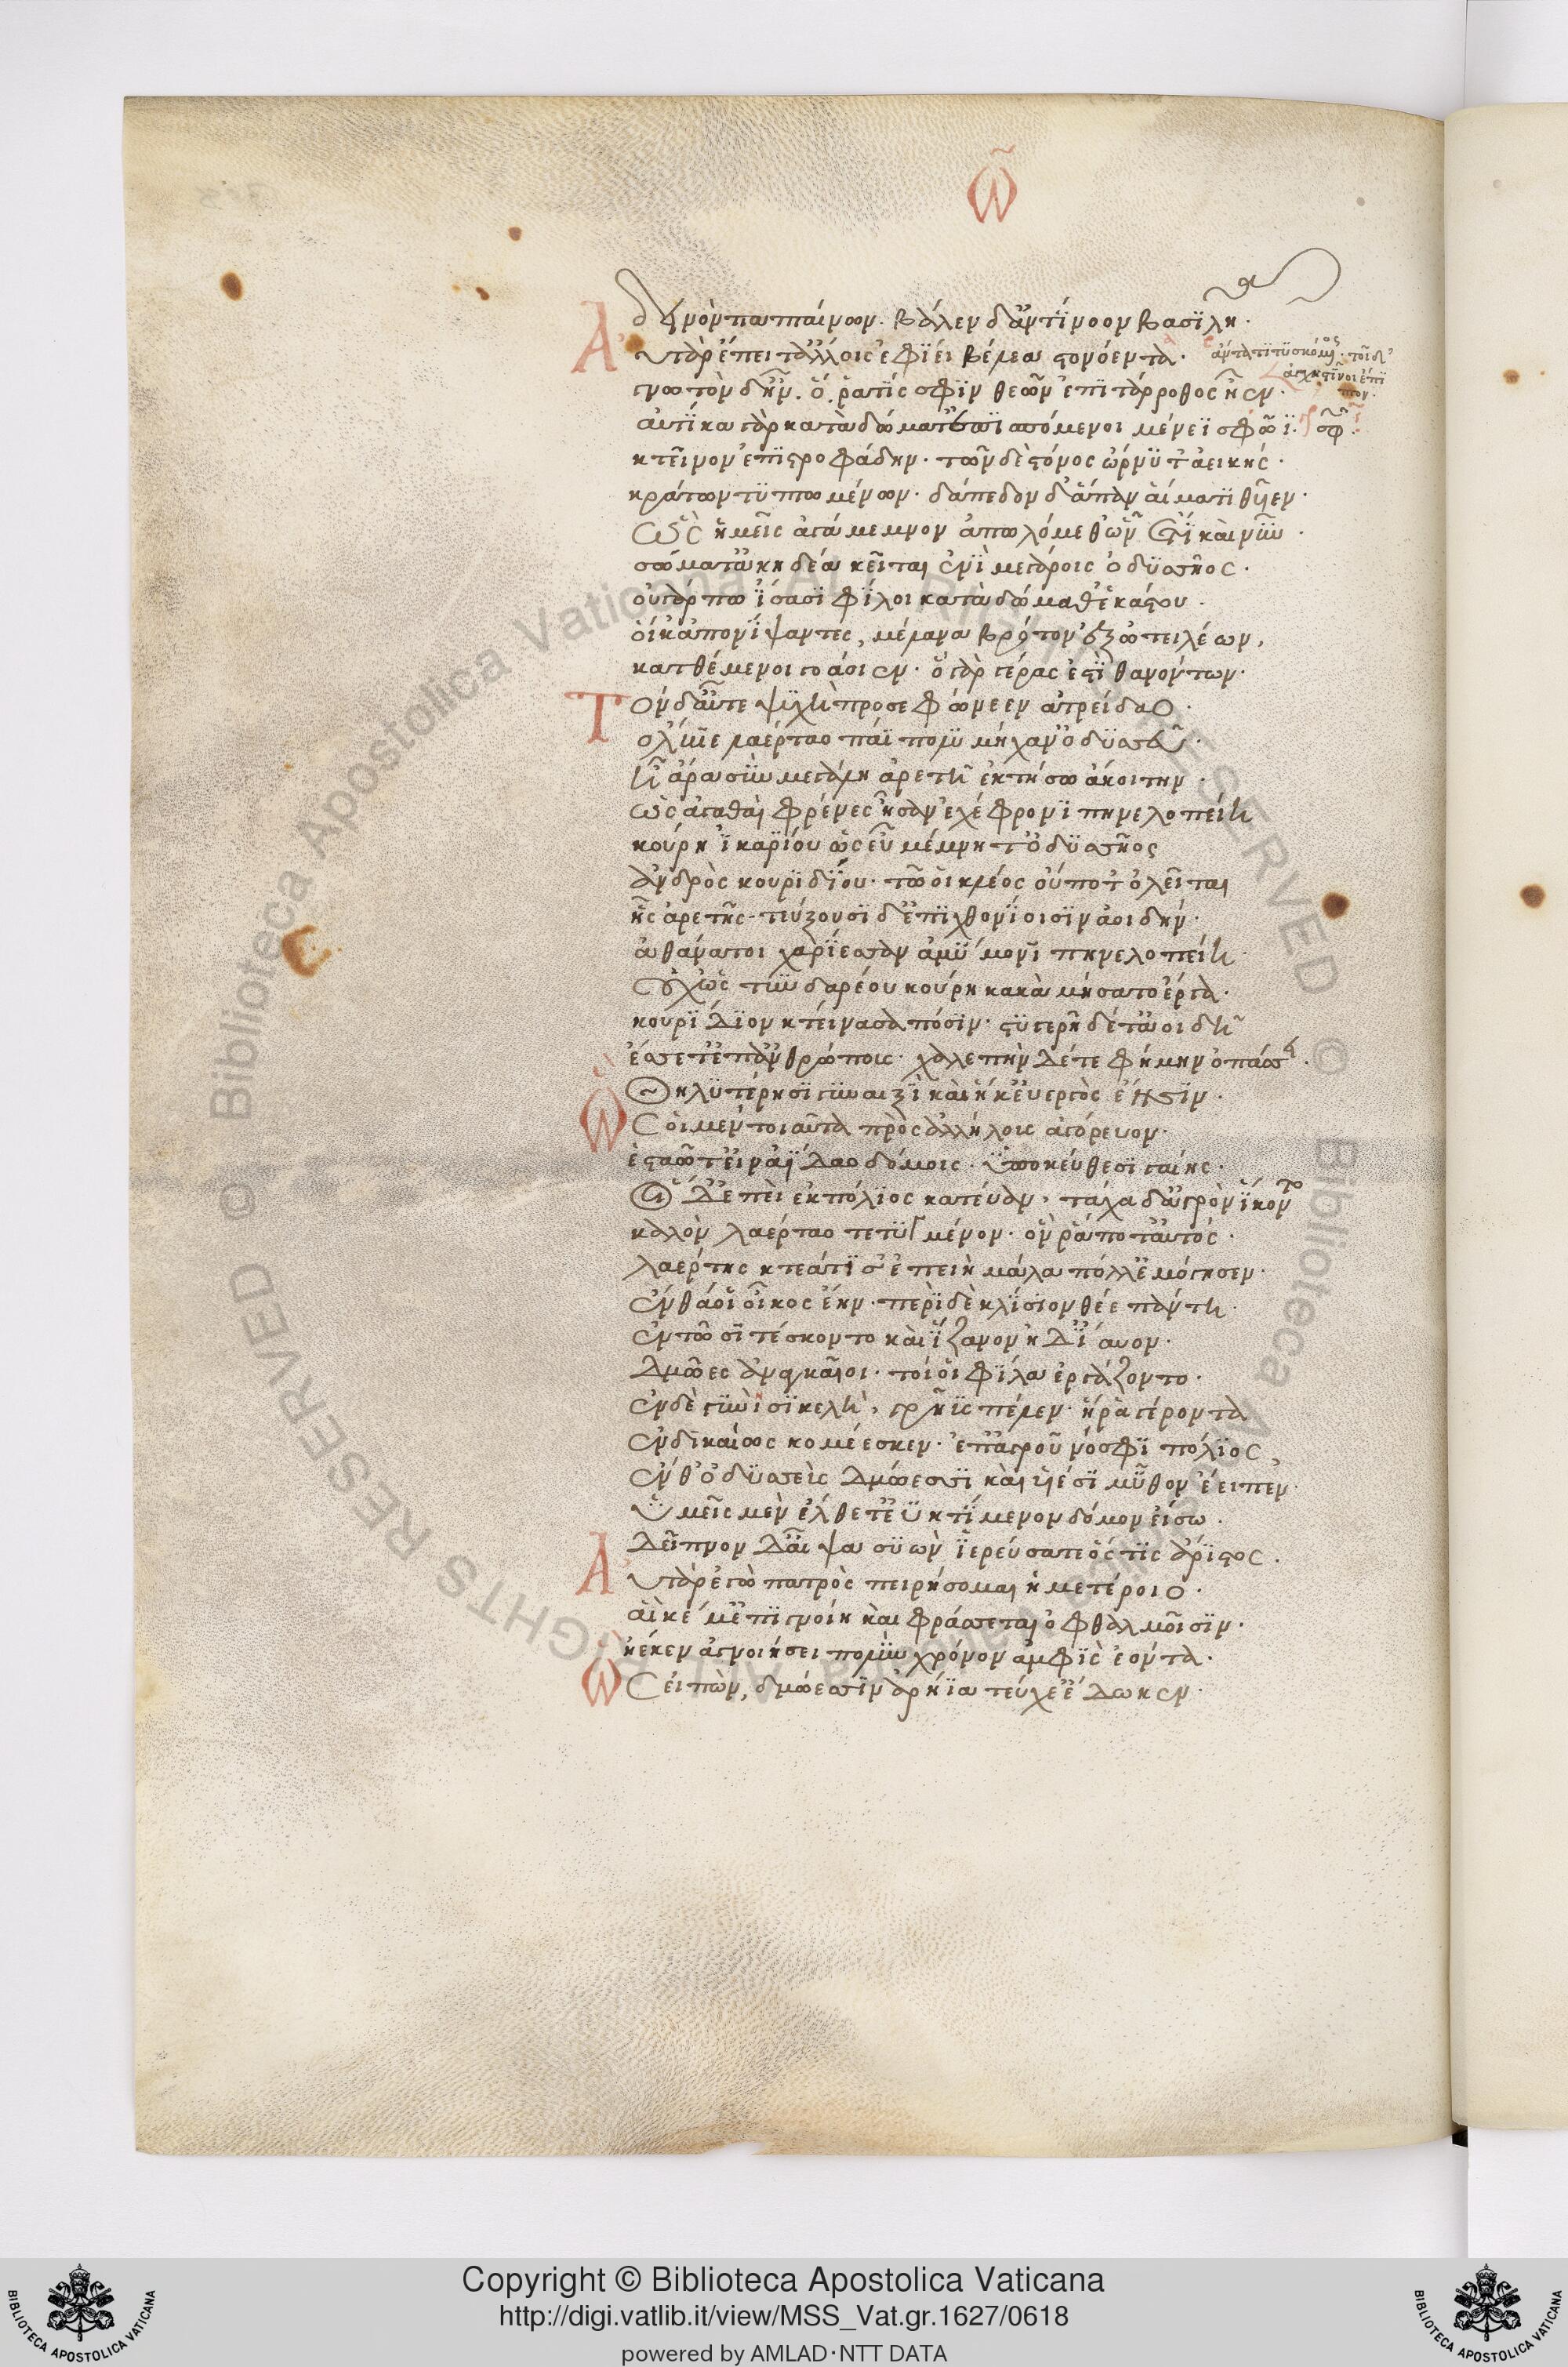 ω
δεινὸν παπταίνων. βάλεν δ' ἀντίνοον βασιλῆ.
Αὐτὰρ ἔπειτ' ἄλλοις ἐφίει βέλεα στονόεντα.
ἄντα τιτυσκόμενος. τοὶ δ'
ἀγχιστῖνοι ἔπιπτον.
γνωτὸν δ' ἦν. ὅ ῥά τίς σφιν θεῶν ἐπιτάρροθος ἦεν.
αὐτίκα γὰρ κατὰ δώματ' ἐπισπόμενοι μένεϊ σφῶϊ.
σφῶ
κτεῖνον ἐπιστροφάδην. τῶν δὲ στόνος ὤρνυτ' ἀεικής.
κράτων τυπτωμένων. δάπεδον δ' ἅπαν αἵματι θῦεν.
Ὣς ἡμεῖς ἀγάμεμνον ἀπωλόμεθ' ὧν ἔτι καὶ νῦν.
σώματ' ἀκηδέα κεῖται ἐνὶ μεγάροις ὀδυσσῆος.
οὐ γάρ πω ἴσασι φίλοι κατὰ δώμαθ' ἑκάστου.
οἵ κ' ἀπονίψαντες, μέλανα βρότον ἐξ ὠτειλέων,
κατθέμενοι γοάοιεν. ὃ γὰρ γέρας ἐστὶ θανόντων.
Τὸν δ' αὖτε ψυχὴ προσεφώνεεν ἀτρείδαο.
ὄλβιε λαέρταο πάϊ πολυμήχαν' ὀδυσσεῦ.
ἦ ἄρα σὺν μεγάλῃ ἀρετῇ ἐκτήσω ἄκοιτην.
ὡς ἀγαθαὶ φρένες ἦσαν ἐχέφρονι πηνελοπείῃ
κούρῃ ἰκαρίου ὡς εὖ μέμνητ' ὀδυσσῆος
ἀνδρὸς κουριδίου. τῶ οἱ κλέος οὔποτ' ὀλεῖται
ἧς ἀρετῆς. τεύξουσι δ' ἐπιχθονίοισιν ἀοιδήν.
ἀθάνατοι χαρίεσσαν ἀμύμονι πηνελοπείῃ.
Οὐχ ὡς τυνδαρέου κούρη κακὰ μήσατο ἔργα.
κουρίδιον κτείνασα πόσιν. στυγερὴ δέ τ' ἀοιδὴ
ἔσσετ' ἐπ' ἀνθρώπους. χαλεπὴν δέ τε φήμην ὀπάσσει.
Θηλυτέρῃσι γυναιξὶ καὶ ἥ κ' εὐεργὸς ἔῃσιν.
Ὣς οἱ μὲν τοιαῦτα πρὸς ἀλλήλους ἀγόρευον.
ἑσταῶτ' εἰν ἀΐδαο δόμοις. ὑπὸ κεύθεσι γαίης.
Οἱ δ' ἐπεὶ ἐκ πόλιος κατέβαν, τάχα δ' ἀγρὸν ἵκοντο
καλὸν λαέρταο τετυγμένον. ὅν ῥά ποτ' αὐτός.
λαέρτης κτεάτισσ' ἐπειὴ μάλα πόλλ' ἐμόγησεν.
ἔνθά οἱ οἶκος ἔην. περὶ δὲ κλίσιον θέε πάντῃ.
ἐν τῶ σιτέσκοντο καὶ ἵζανον ἠδ' ἴαυον.
δμῶες ἀναγκαῖοι. τοί οἱ φίλα ἐργάζοντο.
ἐν δὲ γυνὴ σικελὴ, γρηῢς πέλεν. ἥ ῥα γέροντα
ἐνδικαίως κομέεσκεν. ἐπ' ἀγροῦ νόσφι πόλιος
ἔνθ' ὀδυσσεὺς δμώεσσι καὶ υἱέσι μῦθον ἔειπεν.
Ὑμεῖς μὲν ἔλθετ' ἐϋκτίμενον δόμον εἴσω.
δεῖπνον δ' αἶψα συῶν ἱερεύσατε ὅς τις ἄριστος.
Αὐτὰρ ἐγὼ πατρὸς πειρήσομαι ἡμετέροιο.
αἴ κέ μ' ἐπιγνοίη καὶ φράσσεται ὀφθαλμοῖσιν.
ἠέ κεν ἀγνοιήσει πολὺν χρόνον ἀμφὶς ἐόντα.
Ὣς εἰπὼν, δμώεσσιν ἀρήϊα τεύχε' ἔδωκεν.
Copyright © Biblioteca Apostolica Vaticana
http://digi.vatlib.it/view/MSS_Vat.gr.1627/0618
powered by AMLAD·NTT DATA